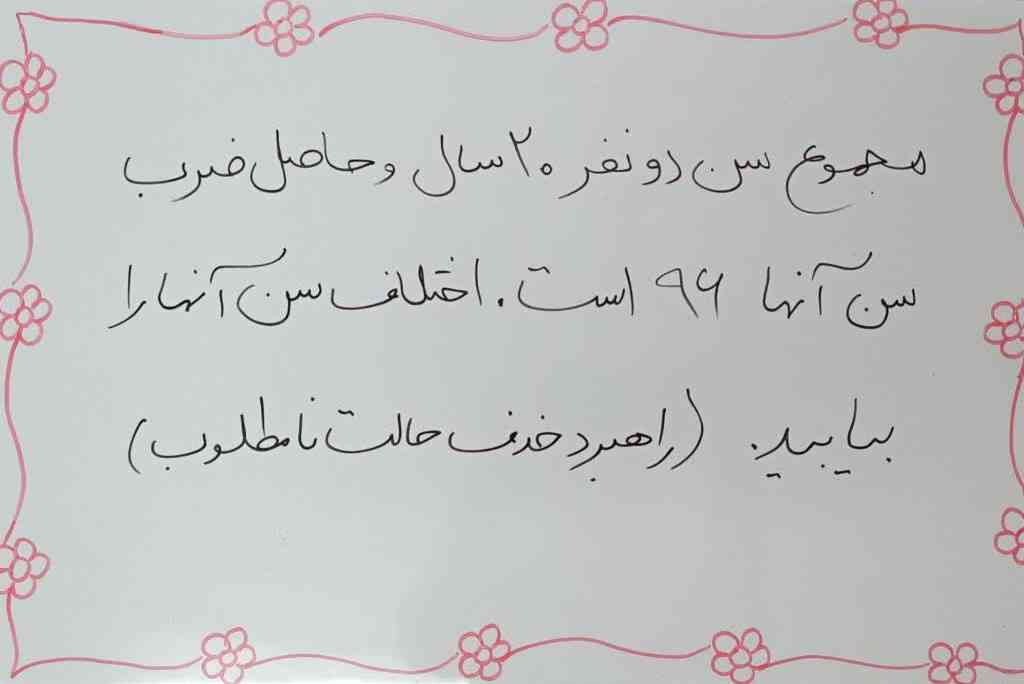 مجموع سن دو نفر ۲۰ سال و حاصل ضرب
سن آنها ۹۶ است. اختلاف سن آنها را
بیابید. (راهبرد حذف حالت نامطلوب)